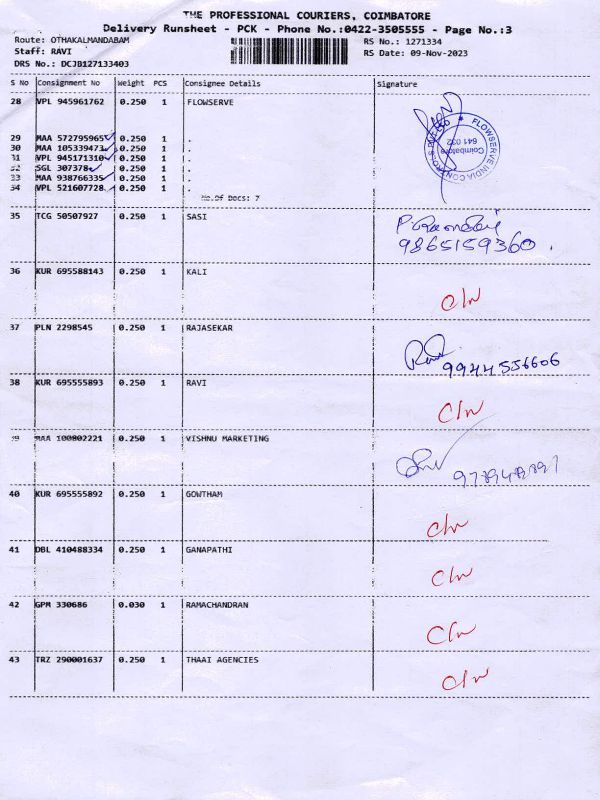 THE PROFESSIONAL COURIERS, COIMBATORE
Delivery Runsheet - PCK - Phone No.:0422-3505555 - Page No.:3
Route: OTHAKALMANDABAM
RS No.: 1271334
Staff: RAVI
RS Date: 09-Nov-2023
DRS No.: DCJB127133403
S No Consignment No Weight PCS Consignee Details Signature
28 VPL 945961762 0.250 1 FLOWSERVE
FLOWSERVE INDIA CONTROLS
Coimbatore
641 032
29 MAA 572795965 0.250 1 .
30 MAA 105339473 0.250 1 .
31 VPL 945171310 0.250 1 .
32 SGL 307378 0.250 1 .
33 MAA 938766335 0.250 1 .
34 VPL 521607728 0.250 1 .
No.Of Docs: 7
35 TCG 50507927 0.250 1 SASI
9865159360.
36 KUR 695588143 0.250 1 KALI
C/N
37 PLN 2298545 0.250 1 RAJASEKAR
9944556606
38 KUR 695555893 0.250 1 RAVI
C/N
39 MAA 100802221 0.250 1 VISHNU MARKETING
40 KUR 695555892 0.250 1 GOWTHAM
C/N
41 DBL 410488334 0.250 1 GANAPATHI
C/N
42 GPM 330686 0.030 1 RAMACHANDRAN
C/N
43 TRZ 290001637 0.250 1 THAAI AGENCIES
C/N